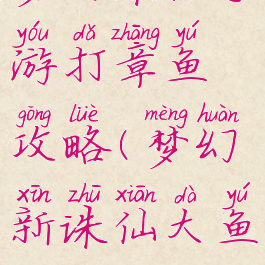 yóu dǎ zhāng yú
游打章鱼
gōng lüè mèng huàn
攻略(梦幻
xīn zhū xiān dà yú
新诛仙大鱼